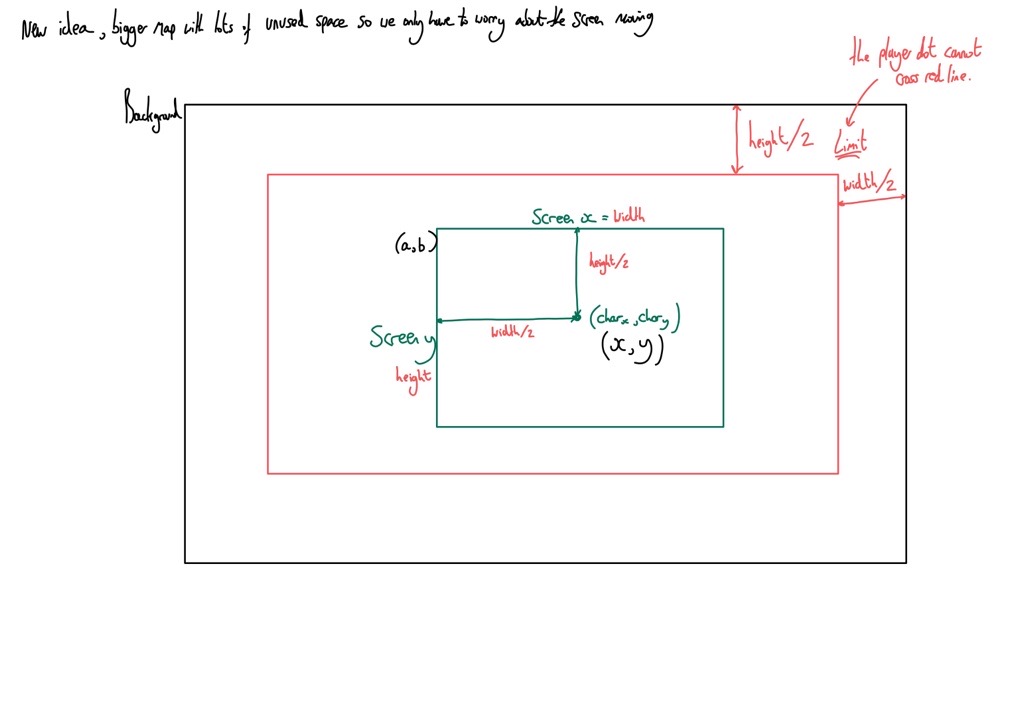 New idea, bigger map with lots of unused space so we only have to worry about the screen moving
the player dot cannot
cross red line.
Background
height/2
Limit
width/2
Screen x = width
(a,b)
height/2
(charx, chary)
width/2
Screen y
(x,y)
height